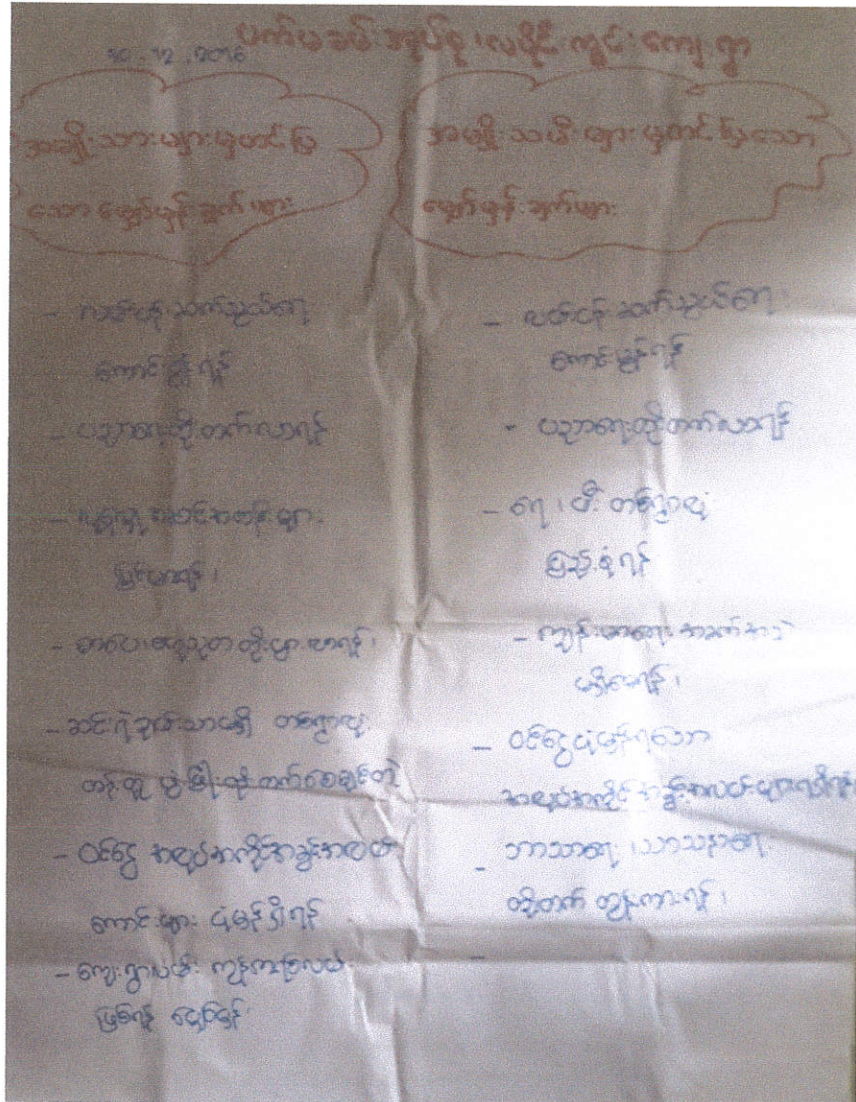 ပက်မခမ်းအုပ်စု၊လပိုင်းကွင်းကျေးရွာ
30.12.2016
အမျိုးသားများမှတင်ပြ
သော မျှော်မှန်းချက်များ
- လမ်းပန်းဆက်သွယ်ရေး
ကောင်းမွန်ရန်
- ပညာရေးတိုးတက်လာရန်
- လူနေမှုအဆင့်အတန်းများ
မြင့်မားရန်၊
- စာပေဗဟုသုတ တိုးပွားလာရန်၊
- ဆင်းရဲချမ်းသာမရှိ တစ်ရွာလုံး
တန်းတူ ဖွံ့ဖြိုးတိုးတက်စေချင်တဲ့
- ဝင်ငွေ အလုပ်အကိုင်အခွင့်အလမ်း
ကောင်းများ ပုံမှန်ရှိရန်
- ကျေးရွာလမ်း ကွန်ကရစ်လမ်း
ဖြစ်ရန် မျှော်မှန်း
အမျိုးသမီးများမှတင်ပြသော
မျှော်မှန်းချက်များ
- လမ်းပန်းဆက်သွယ်ရေး
ကောင်းမွန်ရန်
- ပညာရေးတိုးတက်လာရန်
- ရေ၊ မီး တစ်ရွာလုံး
ပြည့်စုံရန်
- ကျန်းမာရေး အခက်အခဲ
မရှိစေရန်၊
- ဝင်ငွေပုံမှန်ရသော
အလုပ်အကိုင်အခွင့်အလမ်းများရရှိရန်
- ဘာသာရေး၊သာသနာရေး
တိုးတက် ထွန်းကားရန်၊
-